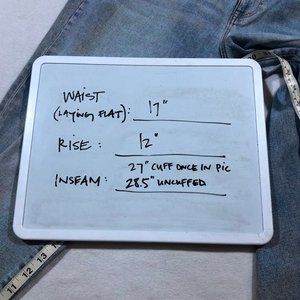 WAIST
(LAYING FLAT): 17"
RISE: 12"
27" CUFF ONCE IN PIC
INSEAM: 28.5" UNCUFFED
11 12 13